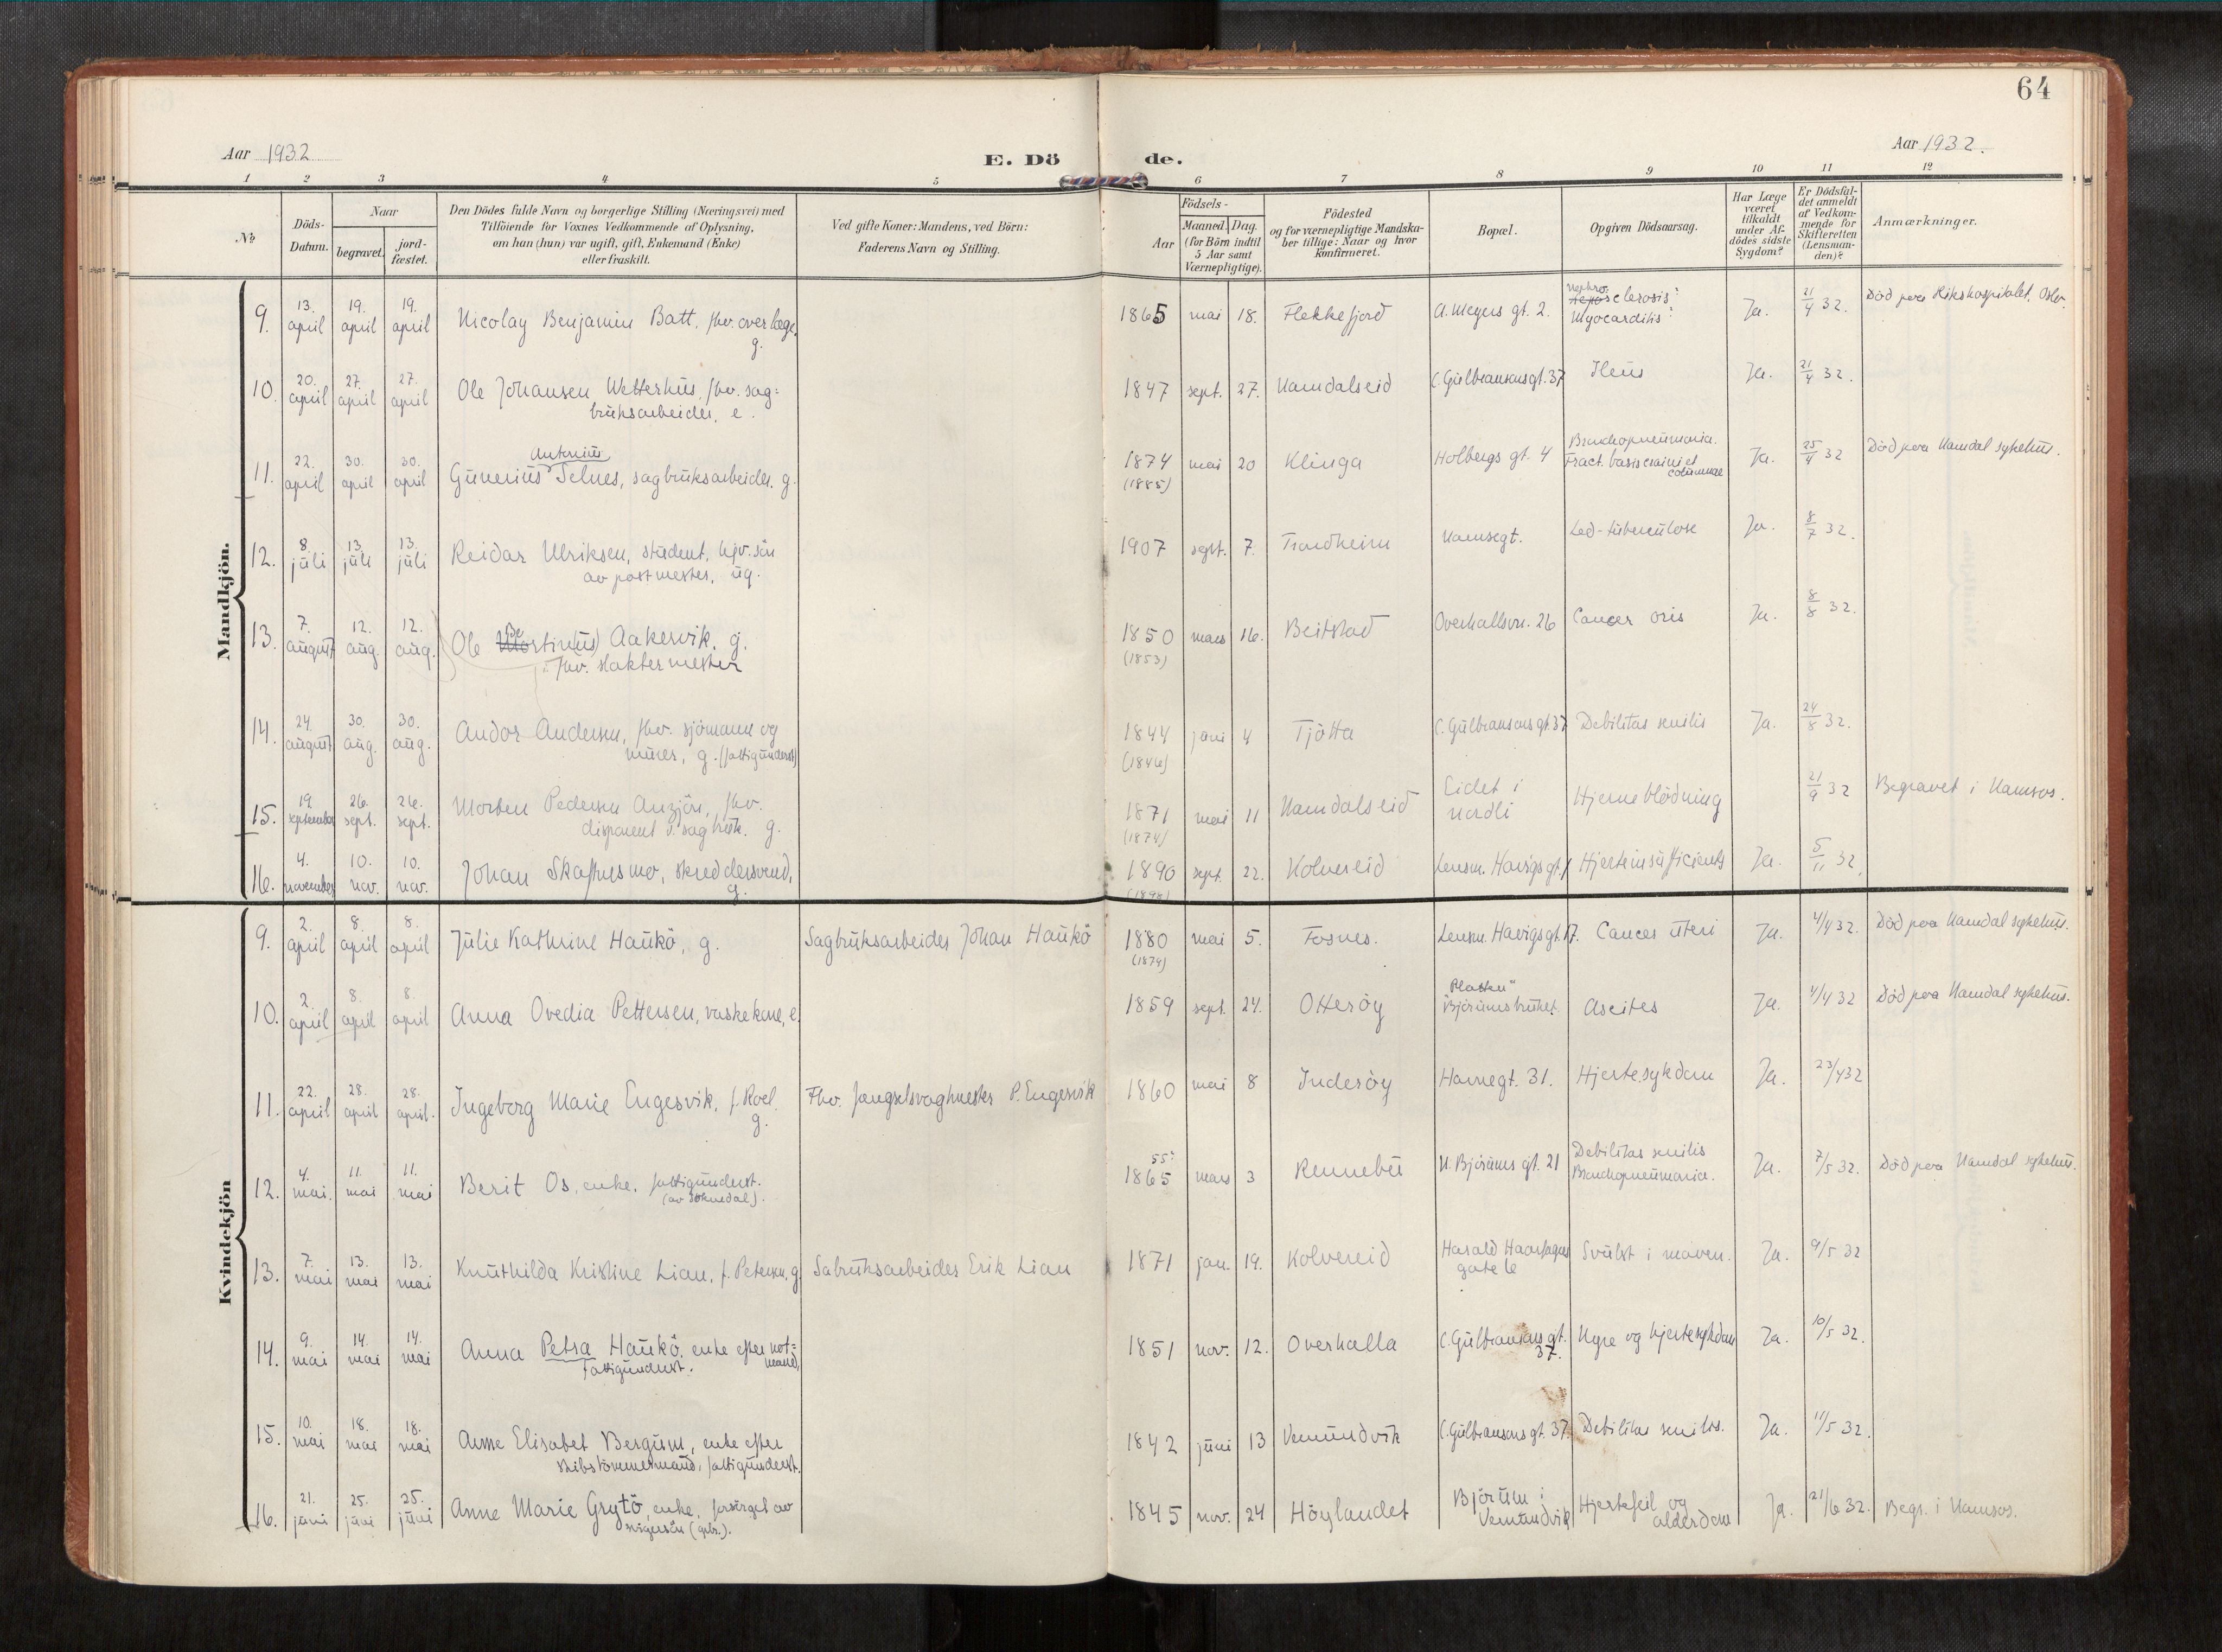 64
Aar 1932
E. Dö de.
Aar 1932.
1 2 3 4 5 6 7 8 9 10 11 12
No
Döds-
Datum.
Naar
begravet.
jord-
fæstet.
Den Dödes fulde Navn og borgerlige Stilling (Næringsvei) med
Tilföiende for Voxnes Vedkommende af Oplysning,
om han (hun) var ugift, gift, Enkemand (Enke)
eller fraskilt.
Ved gifte Koner: Mandens, ved Börn:
Faderens Navn og Stilling.
Födsels-
Aar
Maaned. Dag.
(for Börn indtil
5 Aar samt
Værnepligtige).
Födested
og for værnepligtige Mandska-
ber tillige: Naar og hvor
konfirmeret.
Bopæl.
Opgiven Dödsaarsag.
Har Læge
været
tilkaldt
under Af-
dödes sidste
Sygdom?
Er Dödsfal-
det anmeldt
af Vedkom-
mende for
Skifteretten
(Lensman-
den)?
Anmærkninger.
Mandkjön.
9. 13. april 19. april 19. april Nicolay Benjamin Batt, fhv. overlæge, g. 1865 mai 18. Flekkefjord A. Meyers gt. 2. Nephrosclerosis: Myocarditis: Ja. 21/4 32. Död paa Rikshospitalet, Oslo.
10. 20. april 27. april 27. april Ole Johansen Wetterhus, fhv. sag=
bruksarbeider, e. 1847 sept. 27. Namdalseid C. Gulbransons gt. 37 Ileus Ja. 21/4 32.
11. 22. april 30. april 30. april Gunerius Antonius Selnes, sagbruksarbeider. g. 1874 (1885) mai 20 Klinga Holbergs gt. 4 Bronchopneumonia. Fract. basis cranii et columnae Ja. 25/4 32 Död paa Namdal sykehus.
12. 8. juli 13. juli 13. juli Reidar Ulriksen, student, hjv. sön
av postmester, ug. 1907 sept. 7. Trondheim Namsegt. Led-tuberculose Ja. 8/7 32.
13. 7. august 12. aug. 12. aug. Ole Bertin(us) Aakervik, g.
fhv. slaktermester 1850 (1853) mars 16. Beitstad Overhallsvn. 26 Cancer oris Ja. 8/8 32.
14. 24. august 30. aug. 30. aug. Andor Andersen, fhv. sjömann og
murer, g. (fattigunderst) 1844 (1846) juni 4 Tjötta C. Gulbransons gt. 37 Debilitas senilis Ja. 24/8 32.
15. 19. september 26. sept. 26. sept. Morten Pedersen Anzjön, fhv.
disponent v. sagbruk. g. 1871 (1874) mai 11 Namdalseid Eidet i Nordli Hjerneblödning 21/9 32 Begravet i Namsos.
16. 4. november 10. nov. 10. nov. Johan Skaftnesmo, skreddersvend,
g. 1890 (1898) sept. 22. Kolvereid Lensm. Havigs gt. 1 Hjerteinsufficients Ja. 5/11 32.
Kvindekjön
9. 2. april 8. april 8. april Julie Kathrine Haukö, g. Sagbruksarbeider Johan Haukö 1880 (1874) mai 5. Fosnes. Lensm. Havigs gt. 17. Cancer uteri Ja. 4/4 32. Död paa Namdal sykehus.
10. 2. april 8. april 8. april Anna Ovedia Pettersen, vaskekone, e. 1859 sept. 24. Otteröy "Platten" Björumsbruket. Ascites Ja. 4/4 32 Död paa Namdal sykehus.
11. 22. april 28. april 28. april. Ingeborg Marie Engesvik, f. Roel.
g. Fhv. fængselsvagtmester P. Engesvik 1860 mai 8 Inderöy Havnegt. 31. Hjertesykdom Ja. 23/4 32
12. 4. mai. 11. mai 11. mai Berit Os, enke, fattigunderst.
(av Soknedal). 1865 55? mars 3 Rennebu N. Björums gt. 21 Debilitas senilis Bronchopneumonia. Ja. 7/5 32. Död paa Namdal sykehus.
13. 7. mai 13. mai 13. mai Knuthilda Kristine Lian, f. Petersen, g. Sabruksarbeider Erik Lian 1871 jan. 19. Kolvereid Harald Haarfagres gate 6 Svulst i maven. Ja. 9/5 32
14. 9. mai 14. mai 14. mai Anna Petra Haukö, enke efter not=
mand, fattigunderst. 1851 nov. 12. Overhalla C. Gulbransons gt. 37. Nyre og hjertesykdom Ja. 10/5 32.
15. 10. mai 18. mai 18. mai Anne Elisabet Bergum, enke efter
skibstömmermand, fattigunderst. 1842 juni 13 Vemundvik C. Gulbransons gt. 37. Debilitas senilis. Ja. 11/5 32.
16. 21. juni 25. juni 25. juni Anne Marie Grytö, enke, forsörget av
svigersön (gbr.). 1845 nov. 24 Höylandet Björum i Vemundvik Hjertefeil og alderdom Ja. 21/6 32. Begr. i Namsos.